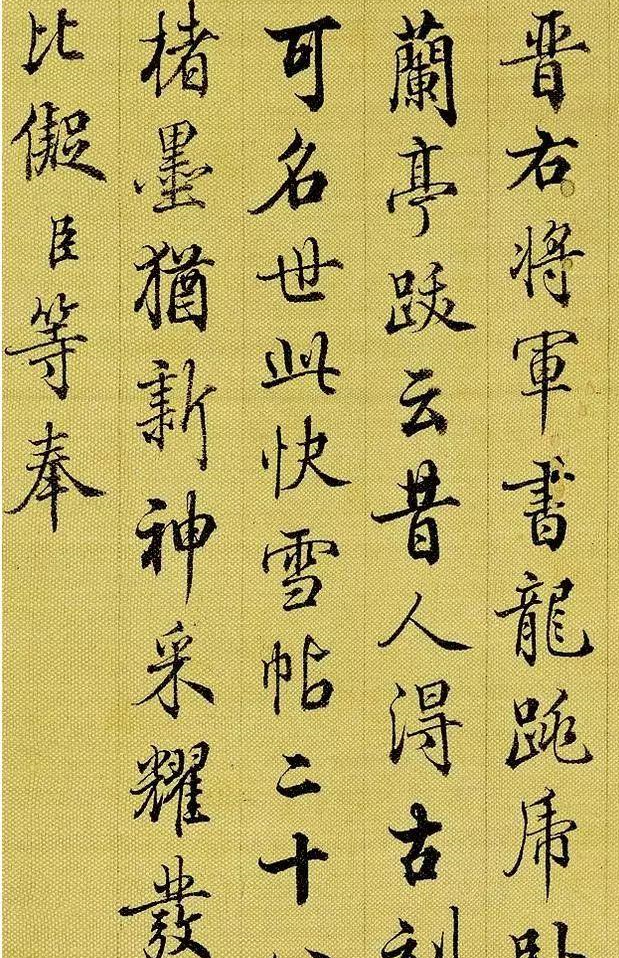 晋右將軍書龍跳虎卧
蘭亭跋云昔人得古刻
可名世此快雪帖二十
楮墨猶新神采耀發
比儗臣等奉